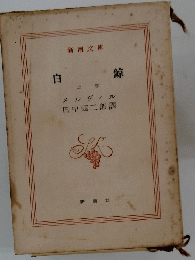 新潮文庫
白鯨
上巻
メルヴィル
田中西二郎訳
新潮社